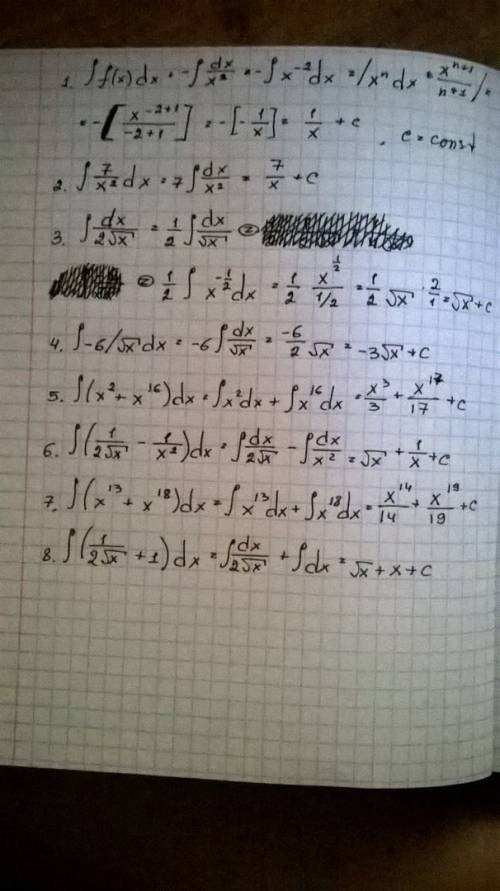 1. ∫f(x)dx = -∫dx/x² = -∫x⁻²dx = /xⁿdx = xⁿ⁺¹/n+1/ =
= -[x⁻²⁺¹/-2+1] = -[-1/x] = 1/x + c , c = const
2. ∫7/x² dx = 7∫dx/x² = 7/x + c
3. ∫dx/2√x = 1/2 ∫dx/√x =
= 1/2 ∫ x^(-1/2) dx = 1/2 x^(1/2)/1/2 = 1/2 √x · 2/1 = √x + c
4. ∫-6/√x dx = -6∫dx/√x = -6/2 √x = -3√x + c
5. ∫(x² + x¹⁶)dx = ∫x²dx + ∫x¹⁶dx = x³/3 + x¹⁷/17 + c
6. ∫(1/2√x - 1/x²)dx = ∫dx/2√x - ∫dx/x² = √x + 1/x + c
7. ∫(x¹³ + x¹⁸)dx = ∫x¹³dx + ∫x¹⁸dx = x¹⁴/14 + x¹⁹/19 + c
8. ∫(1/2√x + 1)dx = ∫dx/2√x + ∫dx = √x + x + c